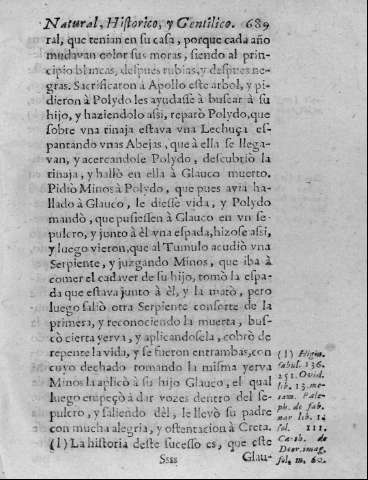 Natural, Historico, y Gentilico. 689
ral, que tenian en su casa, porque cada año
mudavan color sus moras, siendo al prin-
cipio blancas, despues rubias, y despues ne-
gras. Sacrificaron à Apollo este arbol, y pi-
dieron à Polydo les ayudasse à buscar à su
hijo, y haziendolo assi, reparò Polydo, que
sobre vna tinaja estava vna Lechuça es-
pantando vnas Abejas, que à ella se llega-
van, y acercandose Polydo, descubriò la
tinaja, y hallò en ella à Glauco muerto.
Pidiò Minos à Polydo, que pues avia ha-
llado à Glauco, le diesse vida, y Polydo
mandò, que pusiessen à Glauco en vn se-
pulcro, y junto à èl vna espada, hizose assi,
y luego vieron, que al Tumulo acudiò vna
Serpiente, y juzgando Minos, que iba à
comer el cadaver de su hijo, tomò la espa-
da que estava junto à èl, y la matò, pero
luego saliò otra Serpiente consorte de la
primera, y reconociendo la muerta, bus-
cò cierta yerva, y aplicandosela, cobrò de
repente la vida, y se fueron entrambas, con
cuyo dechado tomando la misma yerva
Minos la aplicò à su hijo Glauco, el qual
luego empeçò à dar vozes dentro del se-
pulcro, y saliendo dèl, le llevò su padre
con mucha alegria, y ostentacion à Creta.
(1) La historia deste sucesso es, que este
Ssss Glau-
(1) Higin.
fabul. 136.
251. Ovid.
lib. 13. me-
tam. Pale-
ph. de fab.
nar lib. 14
fol. 111.
de
Deor. imag.
fol. m. 60.